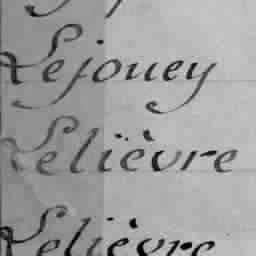 Lejouey
Lelïèvre
Lelièvre